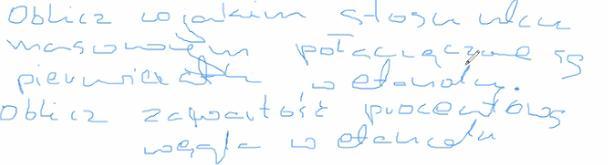 Oblicz w jakim stosunku
masowym połączone są
pierwiastki w etanolu.
Oblicz zawartość procentową
węgla w etanolu